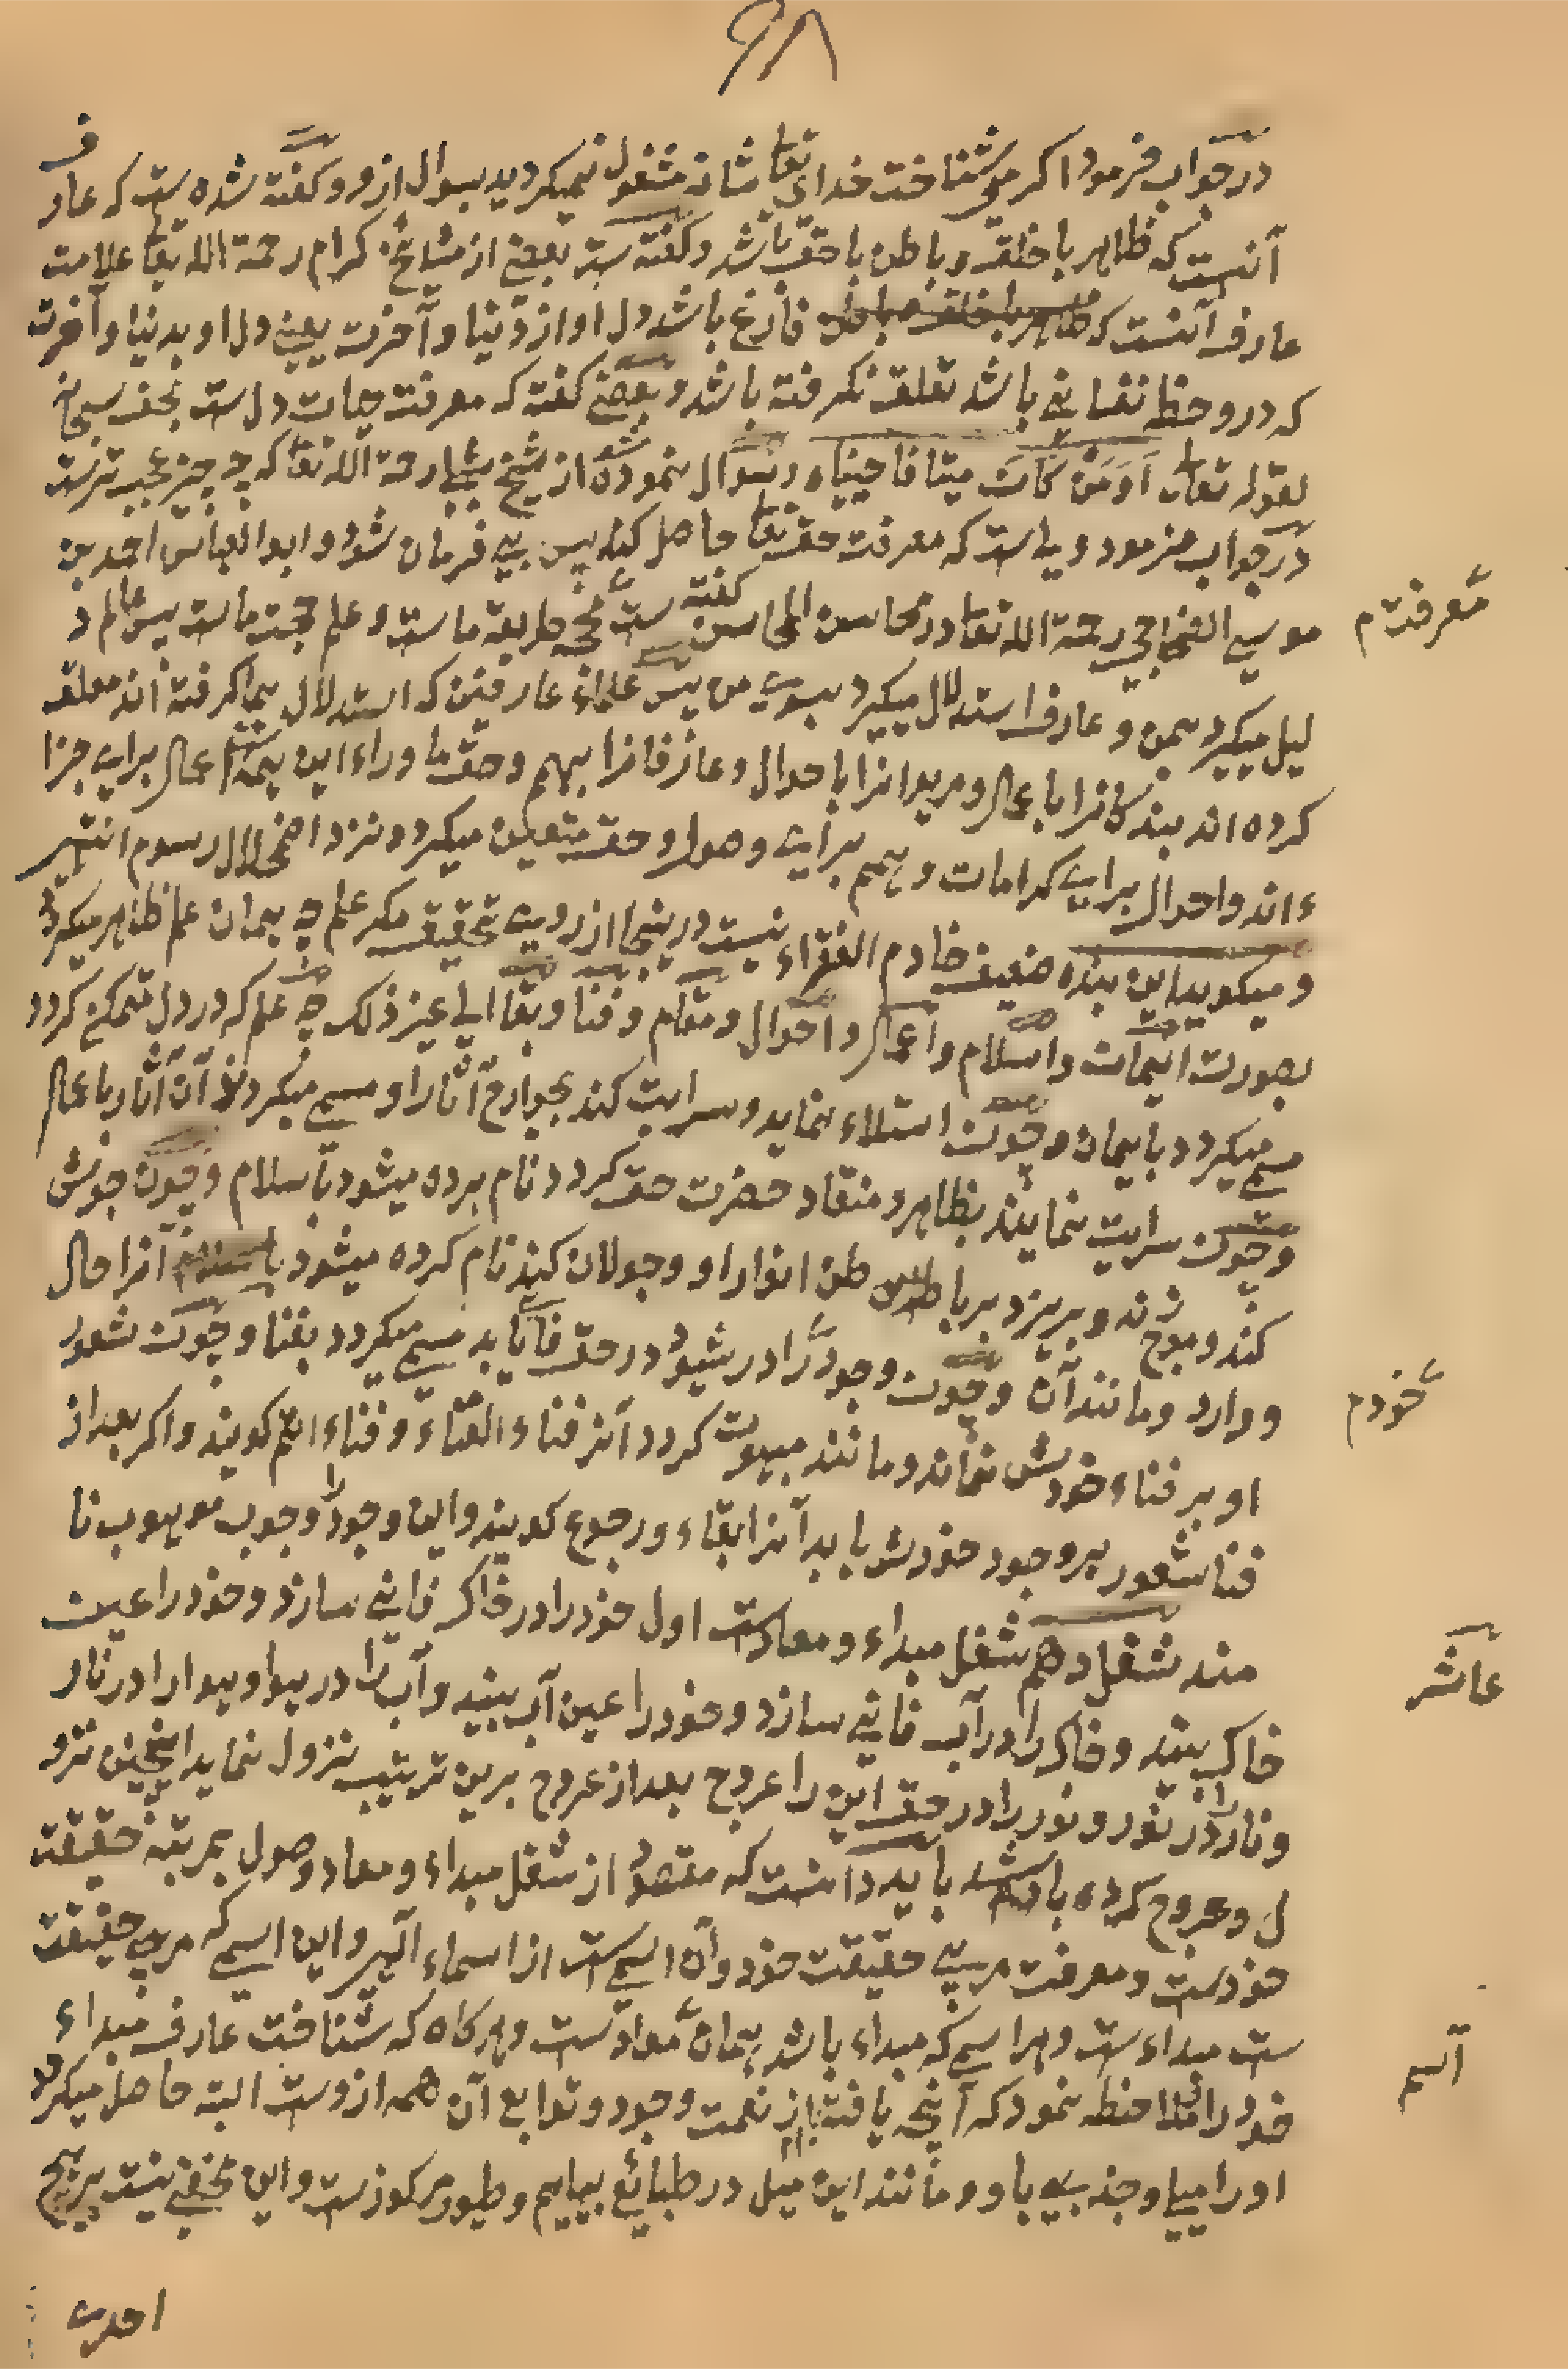 ۶۸
در جواب فرمود اکر مر شناخت خدای تعا شانه مشغول نمیکردید بسوال ازو و کفته شده ست که عارف
آنست که ظاهر با خلق و باطن با حق باشد و کفته ست بعضی از مشایخ کرام رحمة الله تعا علامت
عارف آنست که فارغ باشد دل او از دنیا و آخرت یعنی دل او بدنیا و آخرت
که درو حظ نفسانی باشد تعلق نکرفته باشد و بعضی کفته که معرفت حیات دل ست بحق سبحانه
لقوله تعا اَوَمَن کانَ میتا فاحییناه و سوال نموده شد از شیخ شبلی رحمة الله تعا که چه چیز عجیب ترست
در جواب فرمود دلی است که معرفت حق تعا حاصل کند پس بی فرمان شود و ابو العباس احمد بن
موسی رحمة الله تعا در محاسن المجالس کفته ست طریقه ماست و علم حجت ماست پس عالم د
معرفت م
لیل میکیرد بمن و عارف استدلال میکیرد بسوی من پس علماء عارفین که استدلال بما کرفته اند معلق
کرده اند بندکانرا باعمال و مریدانرا باحوال و عارفانرا بهمم و حق ما وراء این همه ست اعمال برای جزا
ء اند و احوال برای کرامات و همم برای وصول و حق متعین میکردد نزد اضمحلال رسوم انتهی
و میکوید این بنده ضعیف خادم الفقراء نیست درینجا از روی تحقیق مکر علم چه همان علم ظاهر میکردد
بصورت ایمان و اسلام و اعمال و احوال و مقام و فنا و بقا الی غیر ذلک چه علم که در دل متمکن کردد
مسمی میکردد بایمان و چون استلاء نماید و سرایت کند بجوارح آثار او مسمی میکردند آن آثار باعمال
و چون سرایت نمایند بظاهر و منقاد حضرت حق کردد نام برده میشود باسلام و چون جوش
کند و موج زند و بریزد بر باطن انوار او و جولان کند نام کرده میشود آنرا حال
و وارد و مانند آن و چون وجود را در شهود در حق فانی یابد مسمی میکردد بفنا و چون شعور
خود م
او بر فناء خودش نماند و مانند مبهوت کردد آنرا فناء الفناء و فناء اتم کویند و اکر بعد از
فنا شعور بر وجود خودش یابد آنرا بقاء و رجوع کویند و این وجود را وجوب موهوب نا
مند شغل دهم شغل مبداء و معاد ست اول خود را در خاک فانی سازد و خود را عین
عاشر
خاک بیند و خاک را در آب فانی سازد و خود را عین آب بیند و آب را در هوا و هوا را در نار
و نار را در نور و نور را در حق این را عروج بعد از عروج برین ترتیب نزول نماید اینچنین نزو
ل و عروج کرده باشد باید دانست که مقصود از شغل مبداء و معاد وصول بمرتبه حقیقت
خودست و معرفت مربی حقیقت خود و آن اسمی ست از اسماء الهی و این اسمی که مربی حقیقت
ست مبداء ست و هر اسمی که مبداء باشد همان معاد ست و هرکاه که شناخت عارف مبداء
اسم
خود را ملاحظه نمود که آنچه یافته از نعمت وجود و توابع آن همه ازوست البته حاصل میکردد
او را میلی و جذبی باو و مانند این میل در طبائع بهایم و طیور مرکوزست و این مخفی نیست بر هیچ
احدی